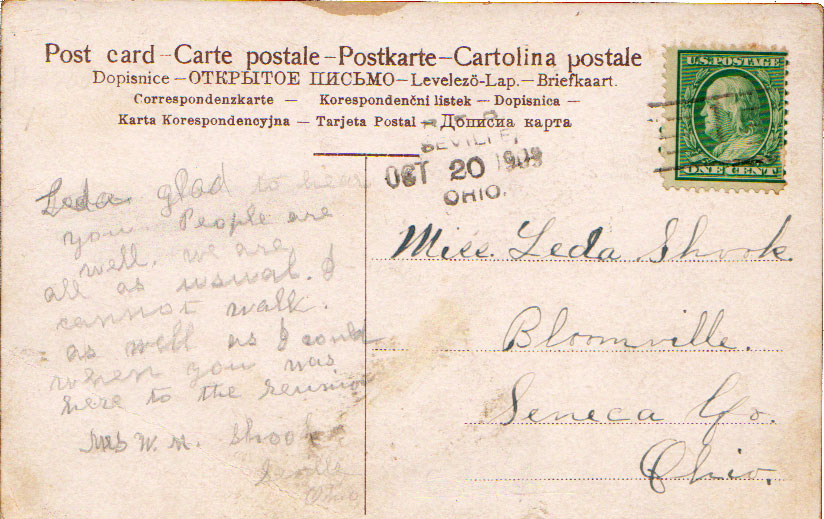 Post card – Carte postale – Postkarte – Cartolina postale
Dopisnice – ОТКРЫТОЕ ПИСЬМО – Levelezö-Lap. – Briefkaart.
Correspondenzkarte – Korespondenčni listek – Dopisnica –
Karta Korespondencyjna – Tarjeta Postal – Дописна карта
U.S. POSTAGE
ONE CENT
SEVILLE,
OCT 20 1909
OHIO.
Leda glad to hear
you People are
well. we are
all as usual. I
cannot walk.
as well as I could
when you was
here to the reunion
Mrs W. M. Shook
Seville
Ohio
Miss. Leda Shook.
Bloomville.
Seneca Co.
Ohio.